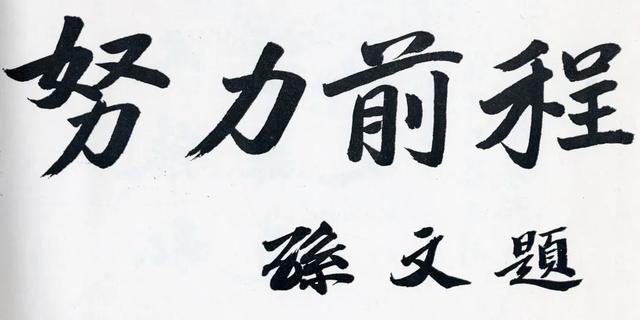 努力前程
孫文題